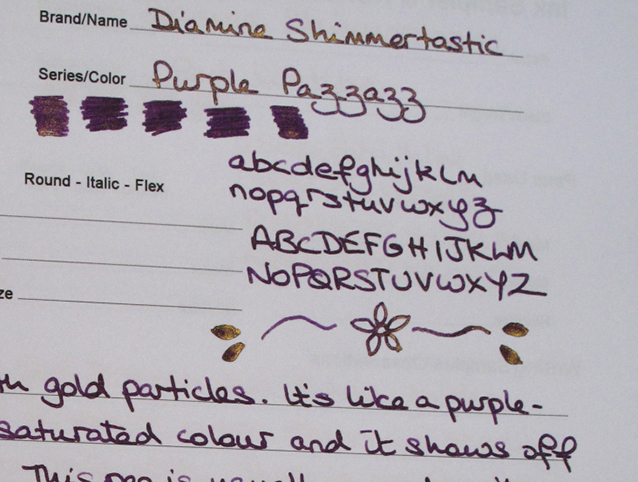 Brand/Name Diamine Shimmertastic
Series/Color Purple Pazzazz
abcdefghijklm
Round - Italic - Flex
nopqrstuvwxyz
ABCDEFGHIJKLM
NOPQRSTUVWXYZ
gold particles. It's like a purple-
saturated colour and it shows off
This pen is